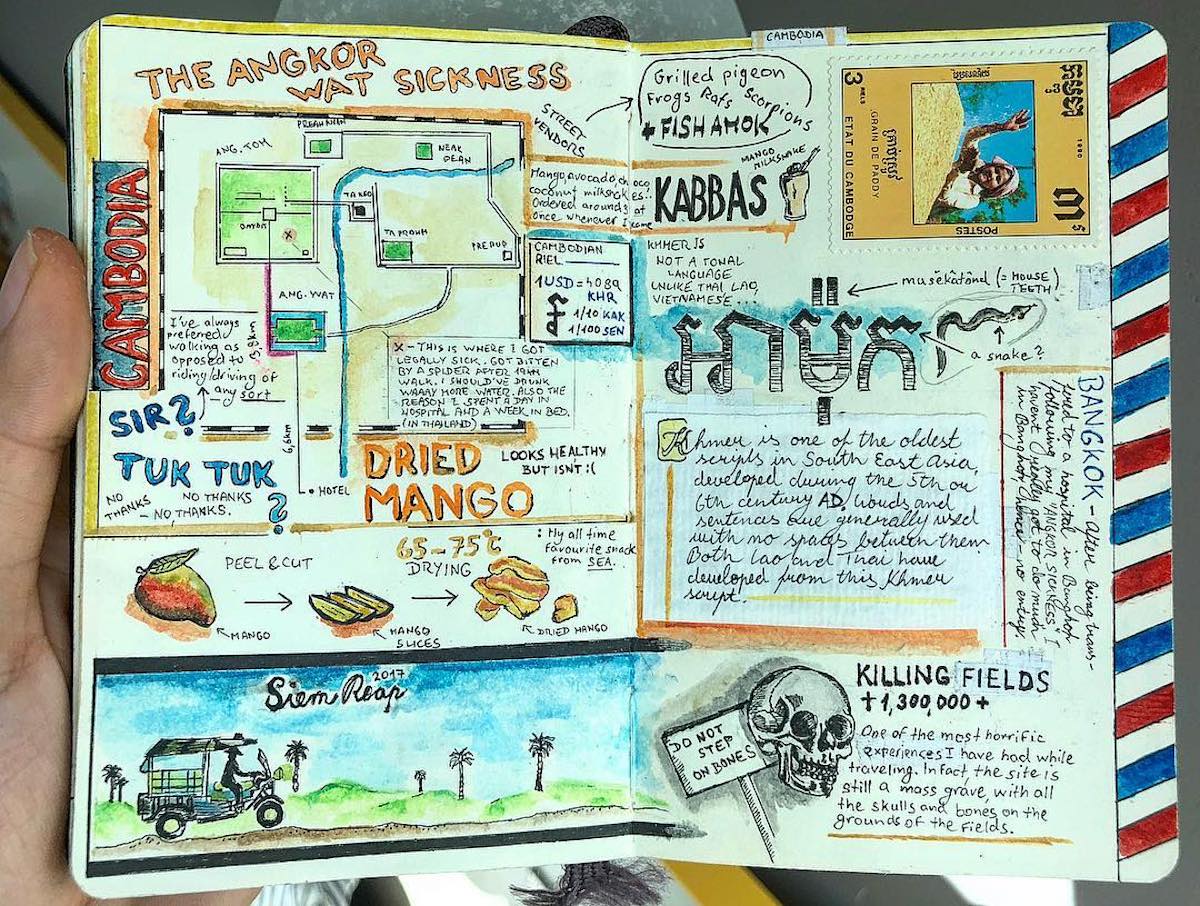 THE ANGKOR
WAT SICKNESS
CAMBODIA
PREAH NEAN
ANG. TOM
NEAK
PEAN
TA KEO
BAYON
TA PROHM
PRE RUP
ANG. WAT
I've always
preferred
walking as
opposed to
riding/driving of
any sort
6,6km
HOTEL
X - THIS IS WHERE I GOT
LEGALLY SICK. GOT BITTEN
BY A SPIDER AFTER 19KM
WALK. I SHOULD'VE DRUNK
WAAAY MORE WATER. ALSO THE
REASON I SPENT A DAY IN
HOSPITAL AND A WEEK IN BED.
(IN THAILAND)
SIR?
TUK TUK
?
NO
THANKS
NO THANKS
- NO, THANKS.
DRIED
MANGO
LOOKS HEALTHY
BUT ISNT :(
PEEL & CUT
65-75°C
DRYING
: My all time
favourite snack
from SEA.
MANGO
MANGO
SLICES
DRIED MANGO
Siem Reap
2017
STREET
VENDORS
Grilled pigeon
Frogs Rats Scorpions
+ FISH AMOK
Mango, avocado, choco,
coconut milkshakes..
Ordered around 3 at
once whenever I came
MANGO
MILKSHAKE
KABBAS
CAMBODIAN
RIEL
1 USD = 4089
KHR
៛
1/10 KAK
1/100 SEN
KHMER IS
NOT A TONAL
LANGUAGE
UNLIKE THAI, LAO,
VIETNAMESE ...
CAMBODIA
3
RIELS
GRAIN DE PADDY
ETAT DU CAMBODGE
1990
POSTES
musĕkătônd (= MOUSE
TEETH)
a snake?
Khmer is one of the oldest
scripts in South East Asia,
developed during the 5th or
6th century AD. Words and
sentences are generally used
with no spaces between them
Both Lao and Thai have
developed from this Khmer
script.
BANGKOK - After being trans-
fered to a hospital in Bangkok
following my "ANGKOR SICKNESS", I
havent really got to do much
in Bangkok, hence - no entry.
KILLING FIELDS
† 1,300,000 +
DO NOT
STEP
ON BONES
One of the most horrific
experiences I have had while
traveling. Infact, the site is
still a mass grave, with all
the skulls and bones on the
grounds of the fields.